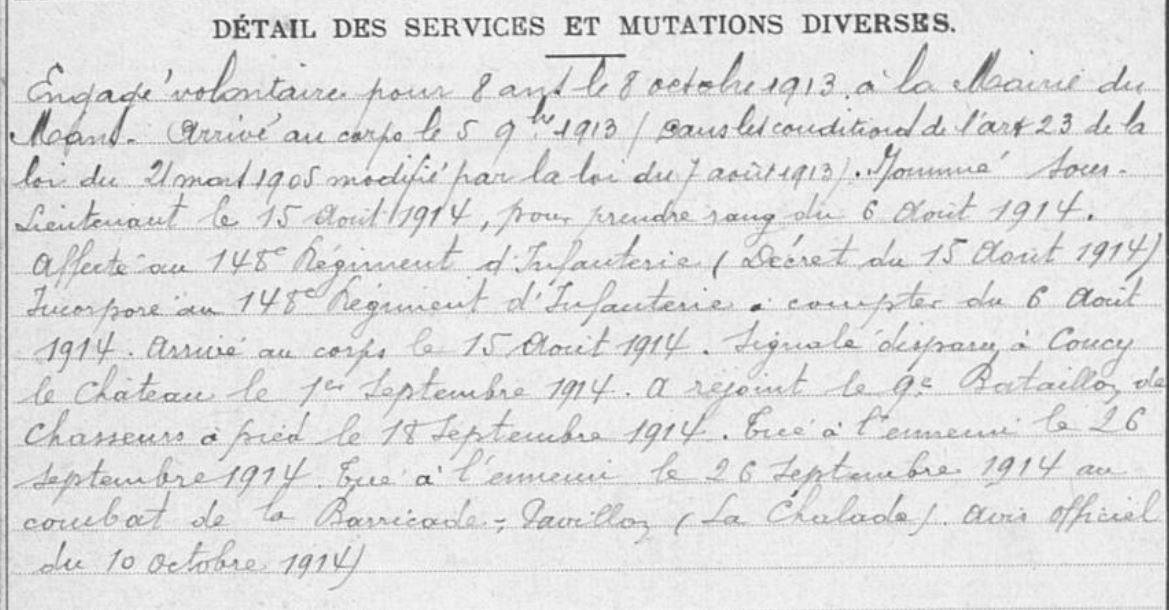 DÉTAIL DES SERVICES ET MUTATIONS DIVERSES.
Engagé volontaire pour 8 ans le 8 octobre 1913 à la Mairie du
Mans. Arrivé au corps le 5 9bre 1913 (dans les conditions de l'art 23 de la
loi du 21 mars 1905 modifié par la loi du 7 août 1913). Nommé Sous-
Lieutenant le 15 Août 1914, pour prendre rang du 6 Août 1914.
Affecté au 148e Régiment d'Infanterie (Décret du 15 Août 1914)
Incorporé au 148e Régiment d'Infanterie à compter du 6 Août
1914. Arrivé au corps le 15 Août 1914. Signalé disparu à Coucy
le Château le 1er Septembre 1914. A rejoint le 9e Bataillon de
Chasseurs à pied le 18 Septembre 1914. Tué à l'ennemi le 26
Septembre 1914. Tué à l'ennemi le 26 Septembre 1914 au
combat de la Barricade-Pavillon (La Chalade). Avis officiel
du 10 Octobre 1914)